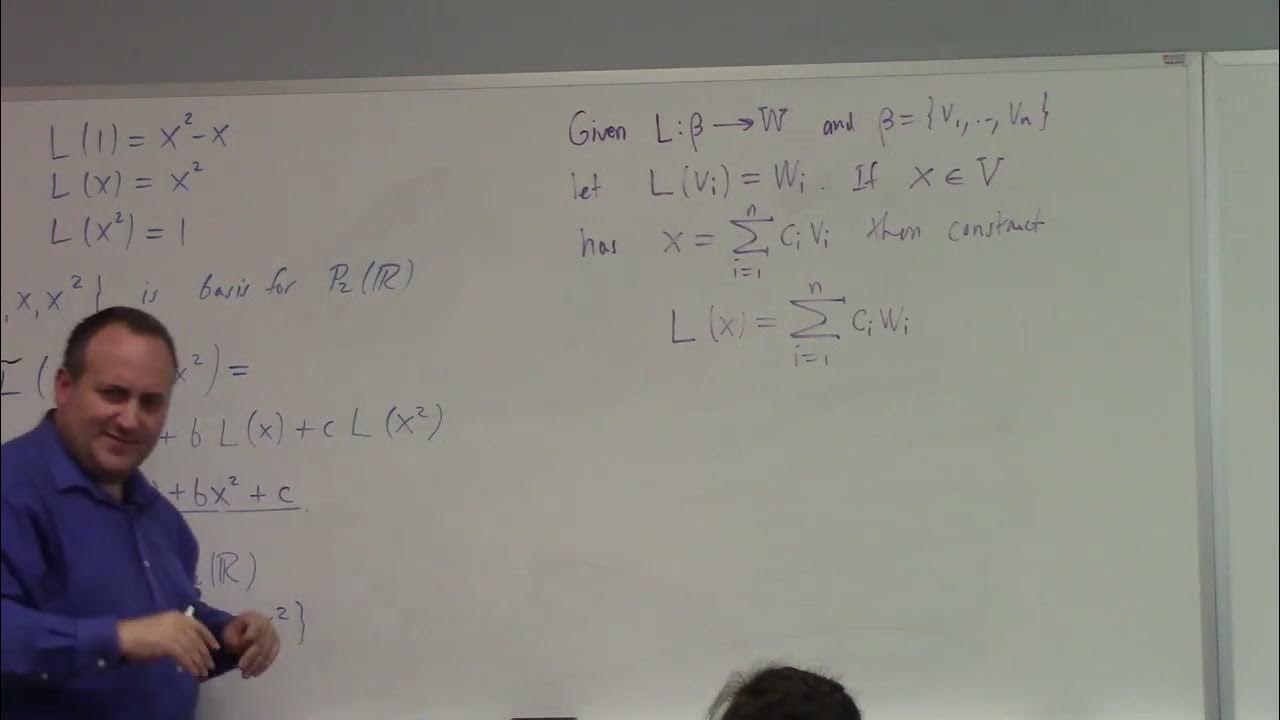 L(1) = x²-x
L(x) = x²
L(x²) = 1
, x, x² } is basis for P₂(ℝ)
( x²) =
+ b L(x) + c L(x²)
) + bx² + c .
(ℝ)
²}
Given L: β → W and β = {v₁, .., vₙ}
let L(vᵢ) = wᵢ. If x ∈ V
has x = ∑ᵢ₌₁ⁿ cᵢ vᵢ then construct
L(x) = ∑ᵢ₌₁ⁿ cᵢ wᵢ